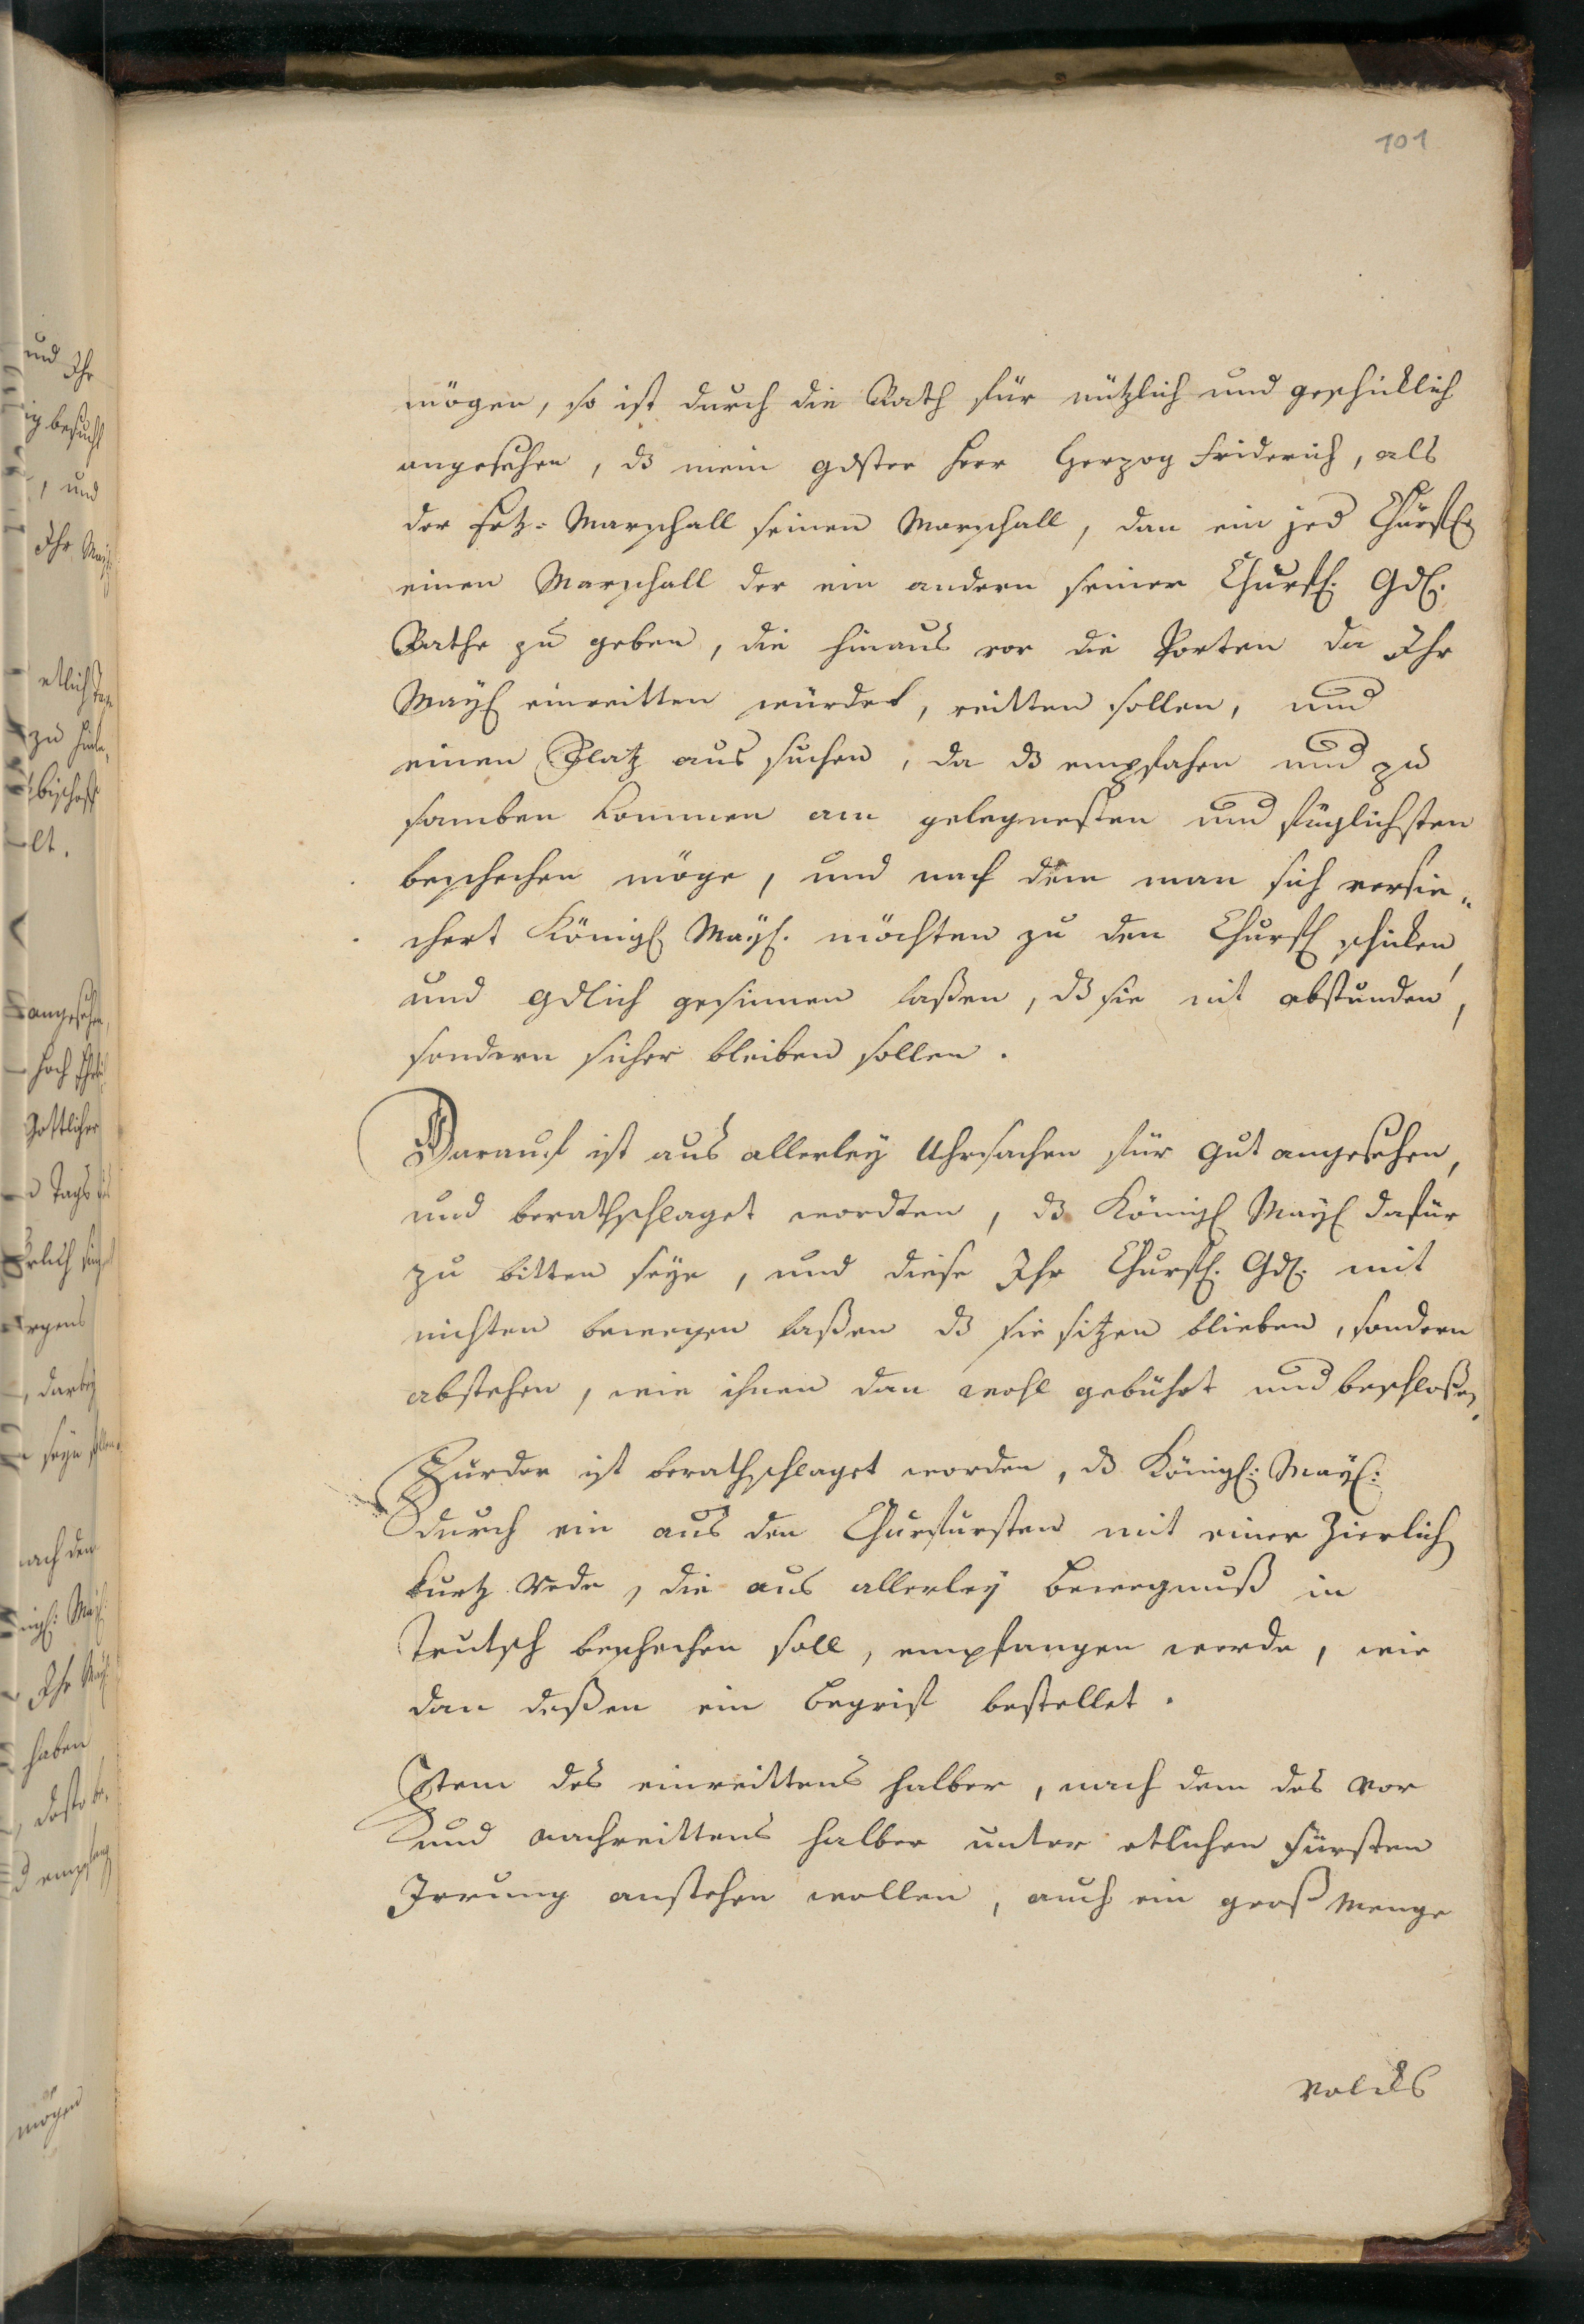 101
mögen, so ist durch die Räth für nützlich und geschicklich
angesehen, dz mein gdster Herr Herzog Friderich, als
der Ertz=Marschall seinen Marschall, dan ein jed Churfl.
einen Marschall der ein andern seiner Churfl. Gdl.
Räthe zu geben, die hinaus vor die Porten da Ihr
Mayl einreitten würdet, reitten sollen, und
einen Platz aus suchen, da dz empfahen und zu
samben kommen am gelegnesten und füglichsten
beschechen möge, und nach dem man sich versie„
chert Königl Mayl. möchten zu den Churfl schicken
und gdlich gesinnen laßen, dz sie nit abstunden,
sondern sicher bleiben sollen.
Darauf ist aus allerley Uhrsachen für gut angesehen,
und berathschlaget wordten, dz Königl Mayl dafür
zu bitten seye, und diese Ihr Churfl. Gdl. mit
nichten bewegen laßen dz sie sitzen blieben, sondern
abstehen, wie ihnen dan wohl gebührt und beschloßen.
Fürder ist berathschlaget worden, dz Königl: Mayl:
durch ein aus den Churfursten mit einer Zierlich
kurtz rede, die aus allerley bewegnuß in
Teutsch beschechen soll, empfangen werde, wie
dan deßen ein begrif bestellet.
Item des einreittens halber, nach dem des vor
und nachreittens halber unter etlichen Fürsten
Irrung anstehen wollen, auch ein groß Menge
Volcks